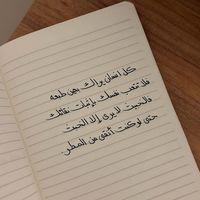 كل انسان يراك بعين طبعه
فلا تتعب نفسك بإثبات نقائك
فالخبيث لا يرى إلا الخبث
حتى لو كنت أنقى من المطر